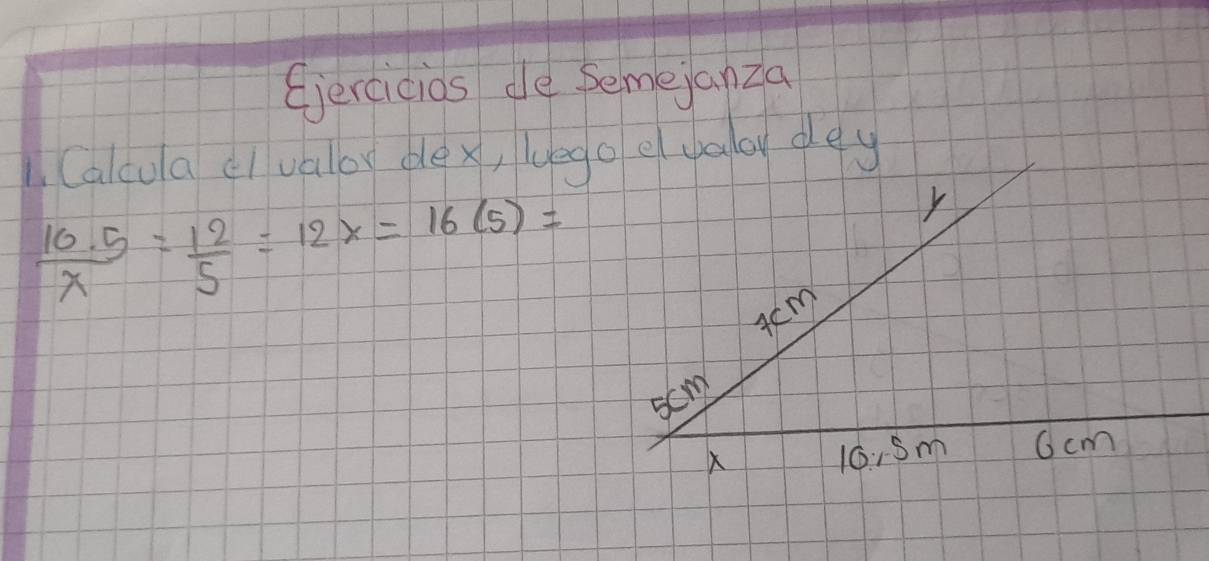 Ejercicios de Semejanza
1. Calcula el valor de x, luego el valor de y
10.5/x = 12/5 = 12x = 16(5) =
y
7cm
5cm
x 10,5m 6cm